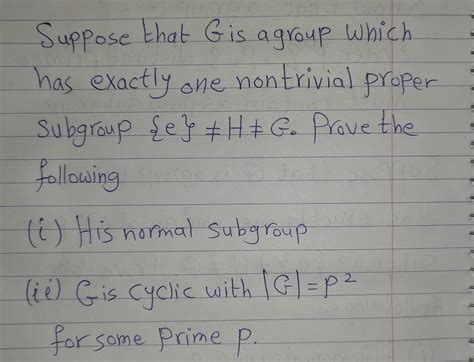 Suppose that G is a group which
has exactly one nontrivial proper
subgroup {e} ≠ H ≠ G. Prove the
following
(i) H is normal subgroup
(ii) G is cyclic with |G| = p²
for some prime p.